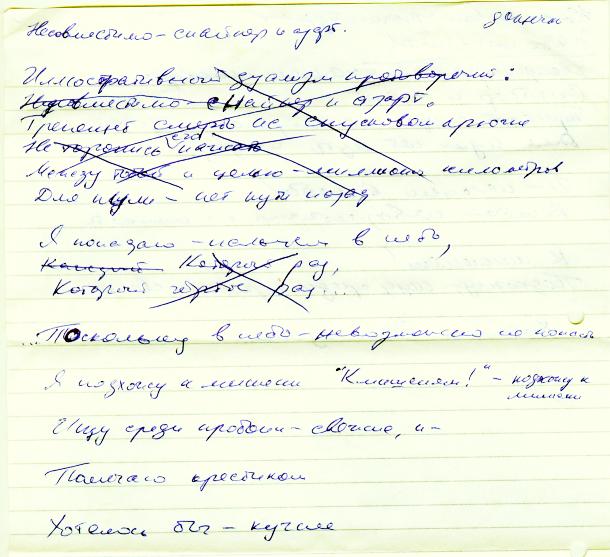 Несовместимо - снайпер и азарт.
Иллюстративный дуализм противоречий:
Несовместимо - снайпер и азарт.
Трепещет смерть на спусковом крючке
Не торопись начать
Между и целью - миллионы километров
Для пули - нет пути назад
Я попадаю - пальцем в небо,
Каждый Который раз,
Который чёртов раз...
...Поскольку в небо - невозможно не попасть
Я подхожу к мишени "К мишеням!" - подхожу к
мишени
Ищу среди пробоин - свои, и -
Помечаю крестиком
Хотелось бы - кучнее